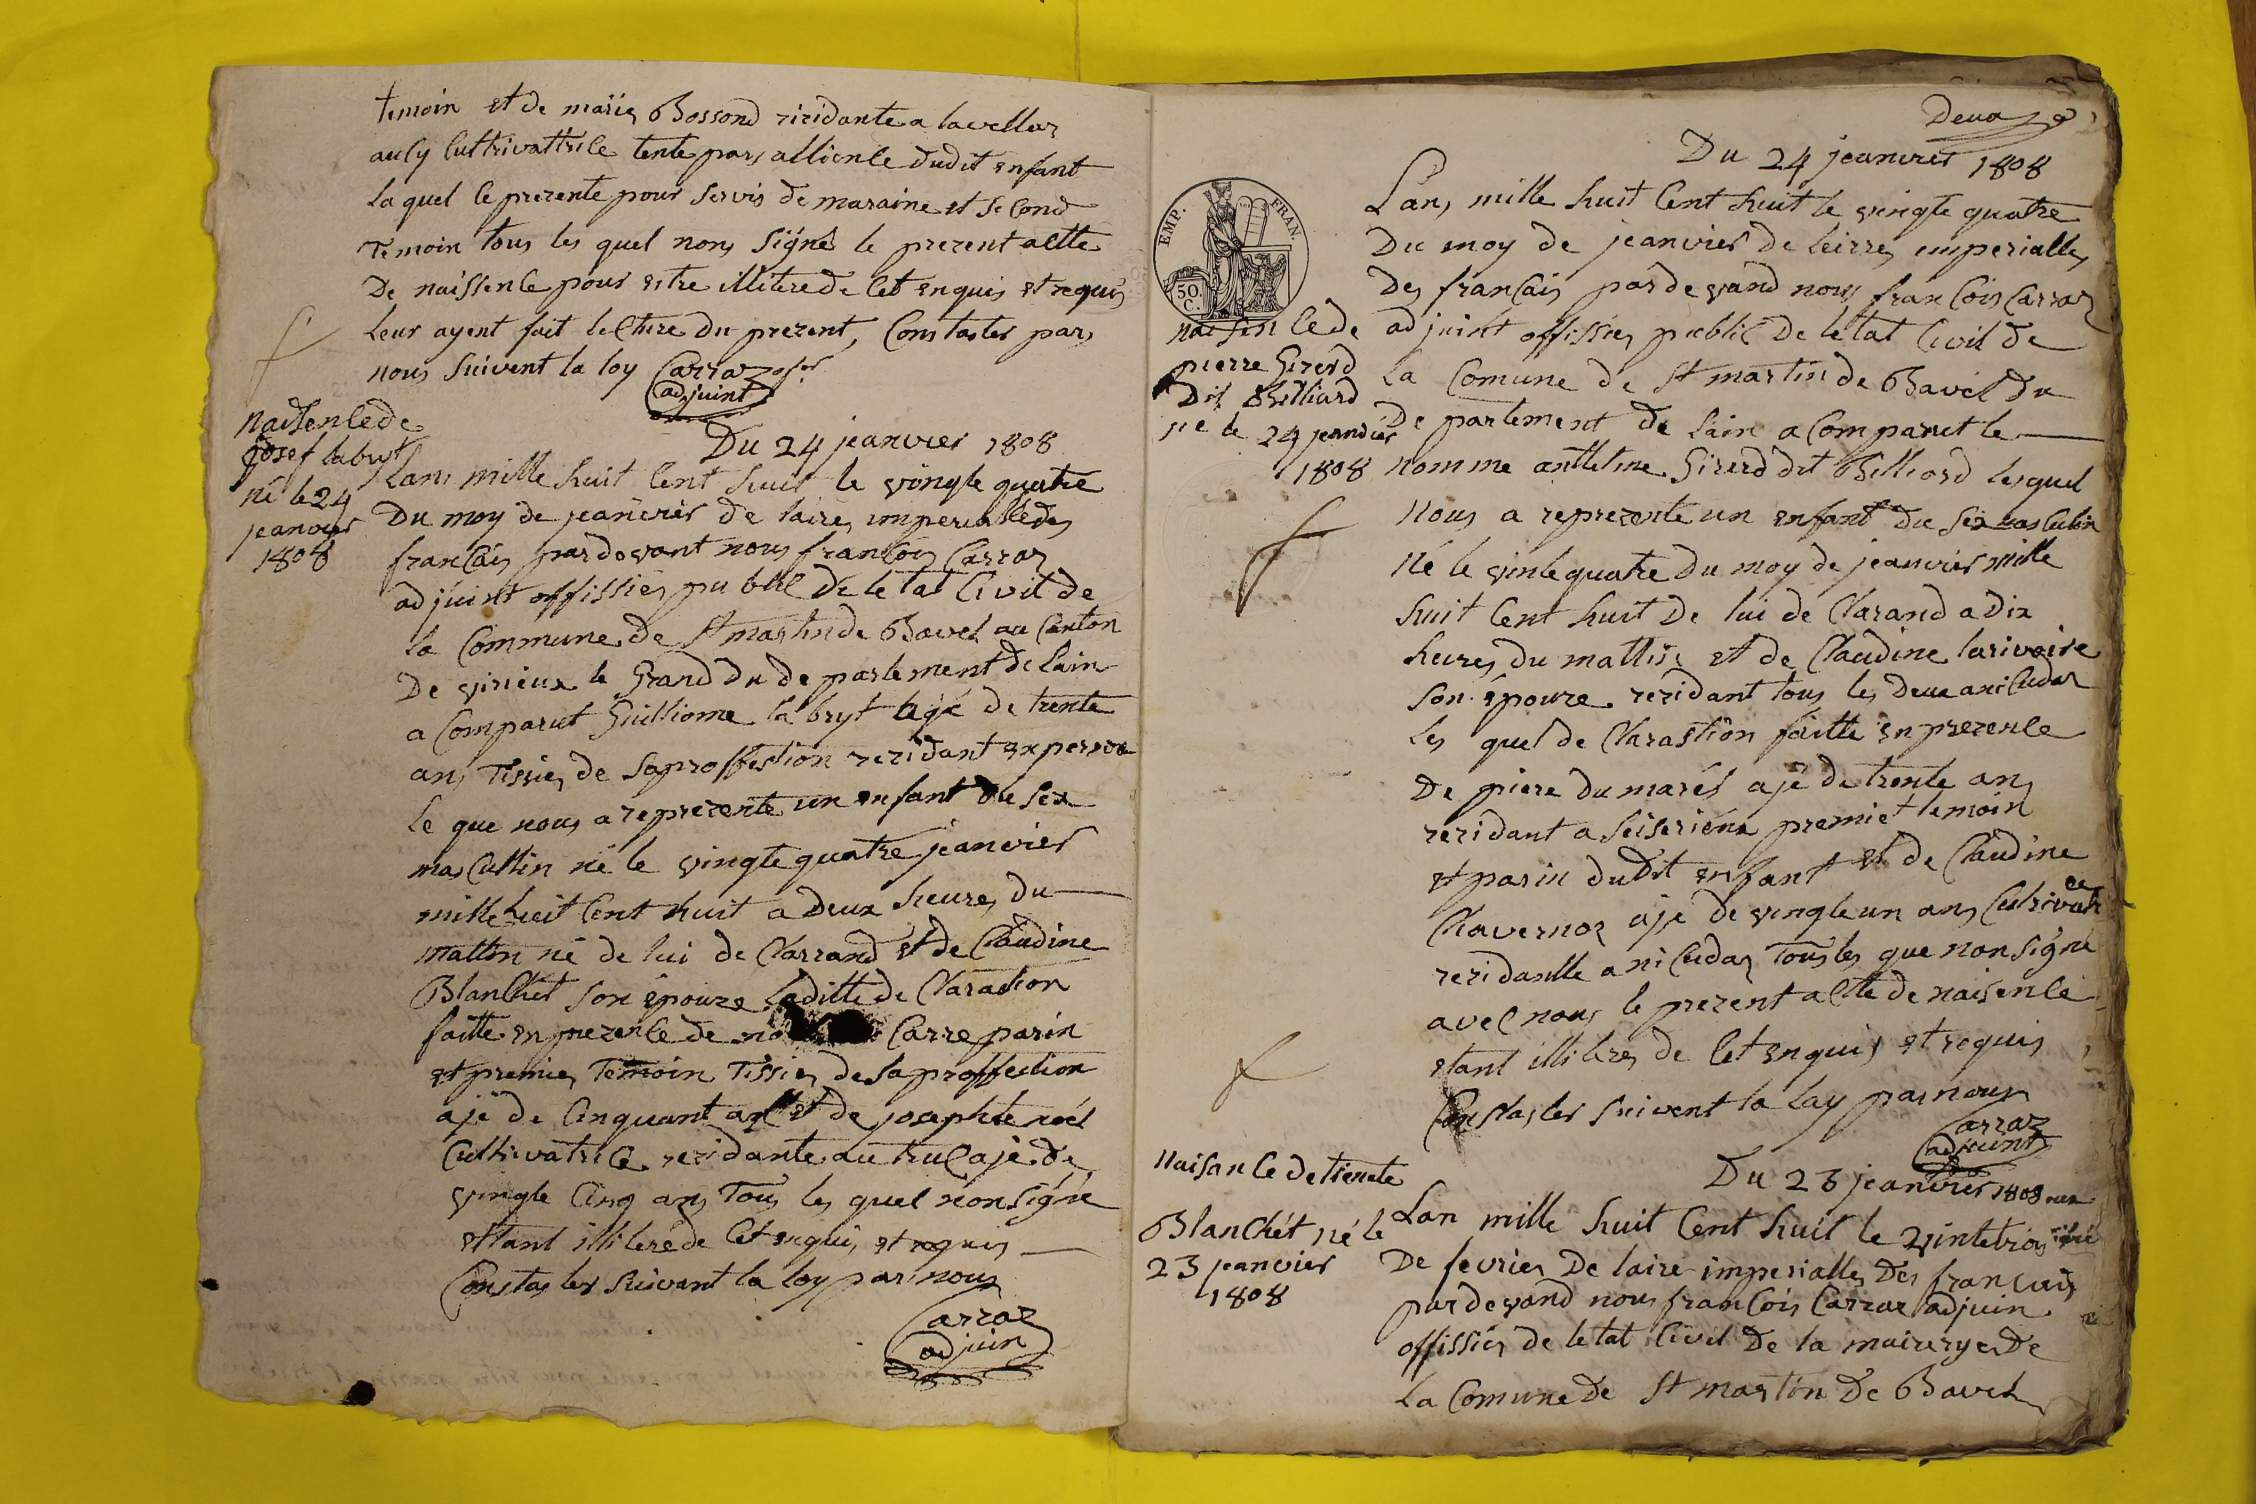 temoin et de marie Bossond rezidante a lavellaz
aucy Cultrivattrice tente pars allience dudit enfant
laquel ce prezente pour servis de maraine et second
temoin tous les quel nons signé le prezent altte
De naissence pour estre illitere de Cet enquis et requis
leur ayent fait lecture du prezent, Constaster pars
nous suivent la loy Carraz ofer
adjuint
naissence de
josef labryt
né le 24
jeanvier
1808
Du 24 jeanvier 1808
Lans mille huit Cent huit le vingte quatre
Du moy de jeanvier de laire imperialle des
francais pardevant nous francois Carraz
adjuint offissier publlc de letat Civil de
la Commune de St martin de Bavel au Canton
De virieux le Grand du de partement de lain
a Comparut Guilliome labryt âgé de trente
ans Tissier de saproffestion rezidant
le que nous a reprezente un enfant du sex
mascullin né le vingte quatre jeanvier
mille huit Cent huit a Deux heures du
mattin né de lui de Clarrand et de Claudine
Blanchet son épouze laditte de Claration
faitte en prezence de Carre parin
et premier Temoin Tissier de saproffection
ajé de Cinquant ans et de josephte noél
Cultivatrice rezidante au truc ajé de
vingte Cinq ans Tous les quel nonsigné
ettant illiteré de Cet enquis et requis
Constaster suivant la loy par nous
Carraz
adjuin
Deux
Du 24 jeanvier 1808
EMP. FRAN.
50 C.
Lans mille huit Cent huit le vingte quatre
Du moy de jeanvier de leirre imperialle
Des francais pardevand nous francois Carraz
naissence de
pierre Girerd
Dit Billiard
né le 24 jeanvier
1808
adjuint offissier public de letat Civil de
la Comune de St martin de Bavel du
De partement de lain a Comparut le
nomme anttelme Girerd dit Billiard lesquel
nous a reprezente un enfant du sex masculin
Né le vinte quatre du moy de jeanvier mille
huit Cent huit De lui de Clarand a Dix
heures du mattin et de Claudine larivoire
son épouze rezidant tous les Deux a niCudaz
les quel de Clarastion faitte en prezence
De piere dumarés ajé de trente ans
rezidant a Seiseriéux premier temoin
et parin dudit enfant et de Claudine
Chavernoz ajé de vingte un ans Cultrivatrice
rezidantte a niCudaz Tous les que nonsigné
avec nous le prezent altte de naisence
etant illiteres de Cet enquis et requis
Constaster suivent la loy par nous
Carraz
adjuint
Naisance de
Blanchét né le
23 jeanvier
1808
Du 23 jeanvier 1808
Lan mille huit Cent huit le vintetrois
De fevrier De laire imperialle Des francais
pardevand nous francois Carraz adjuin
offissier de letat Civil De la mairerye De
la Comune de St martin De Bavel